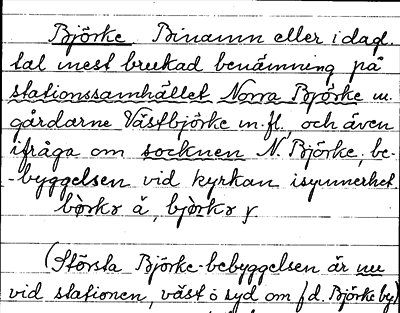 Björke Binamn eller i dagl.
tal mest brukad benämning på
stationssamhället Norra Björke m.
gårdarne Västbjörke m.fl., och även
ifråga om socknen N. Björke, be-
-byggelsen vid kyrkan isynnerhet
bjòrkɘ
(Största Björke-bebyggelsen är nu
vid stationen, väst o syd om f d. Björke by)